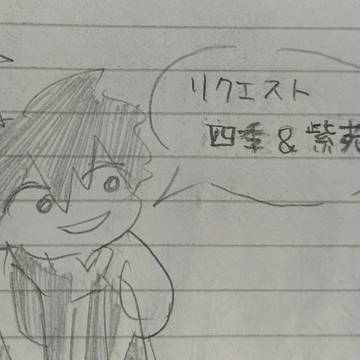 リクエスト
四季&紫苑